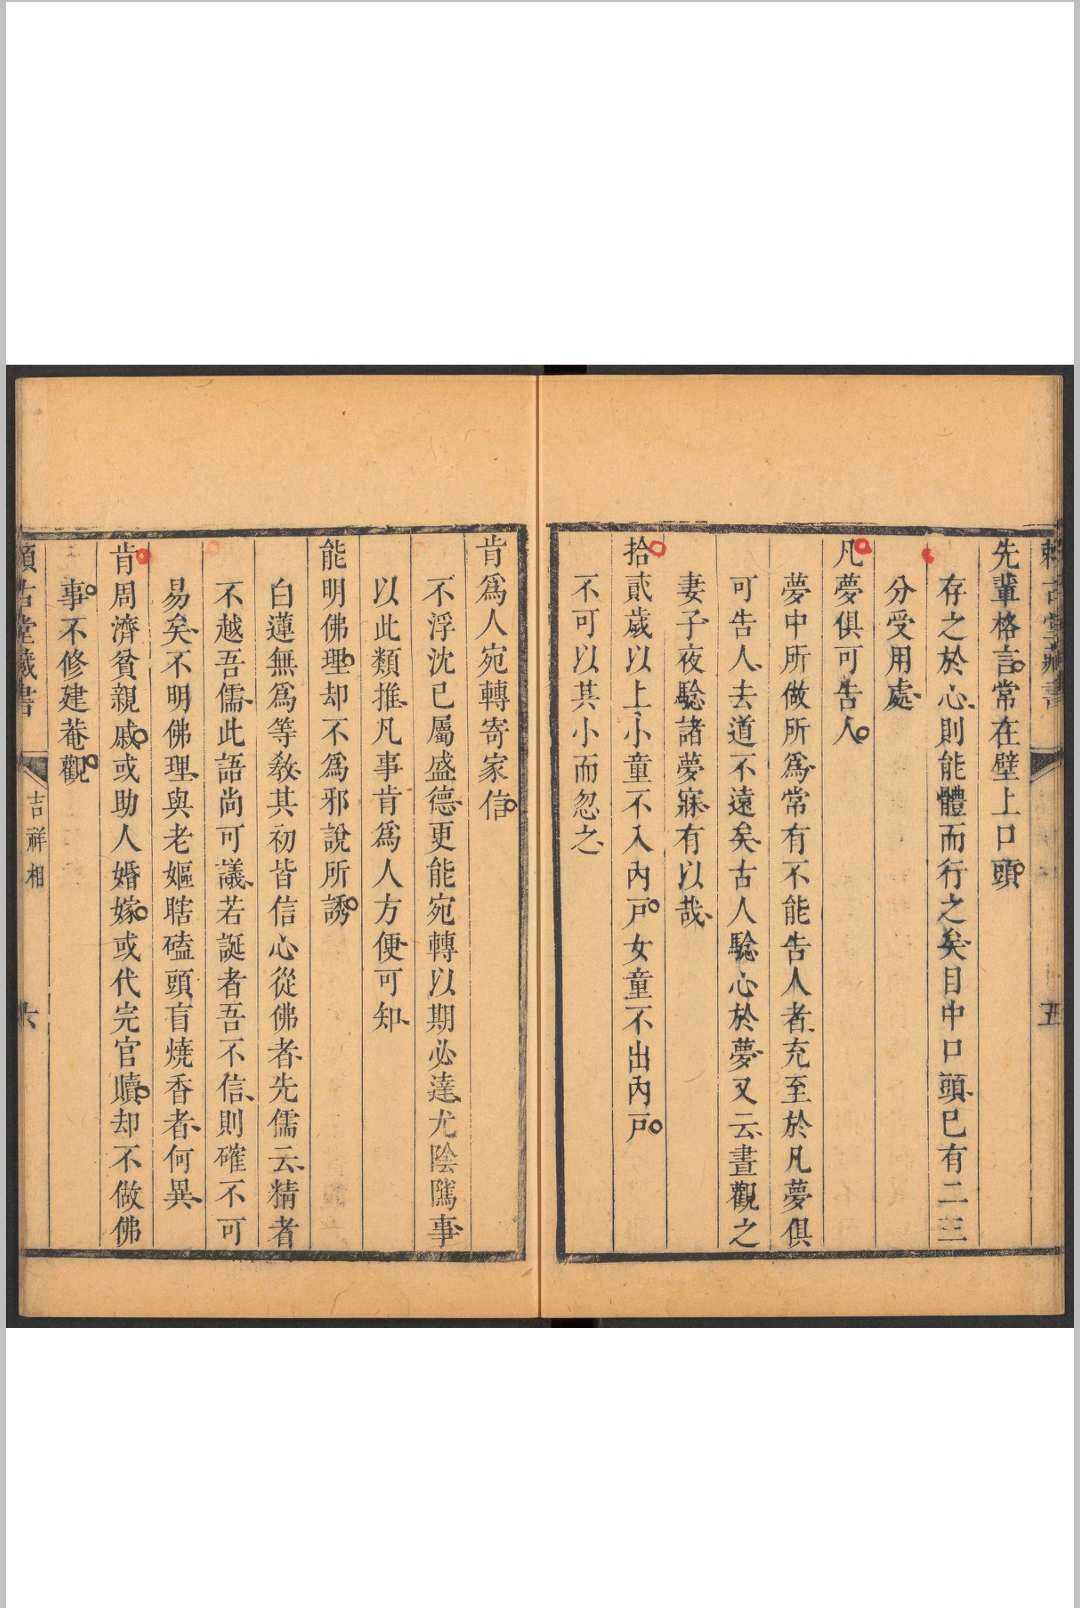 賴古堂藏書
五
先輩格言常在壁上口頭
存之於心則能體而行之矣目中口頭已有二三
分受用處
凡夢俱可告人
夢中所做所爲常有不能告人者充至於凡夢俱
可告人去道不遠矣古人驗心於夢又云晝觀之
妻子夜驗諸夢寐有以哉
拾貳歲以上小童不入內戸女童不出內戸
不可以其小而忽之
肯爲人宛轉寄家信
不浮沈已屬盛德更能宛轉以期必達尤陰隲事
以此類推凡事肯爲人方便可知
能明佛理却不爲邪說所誘
白蓮無爲等敎其初皆信心從佛者先儒云精者
不越吾儒此語尚可議若誕者吾不信則確不可
易矣不明佛理與老嫗瞎磕頭盲燒香者何異
肯周濟貧親戚或助人婚嫁或代完官贖却不做佛
事不修建菴觀
賴古堂藏書
吉祥相
六